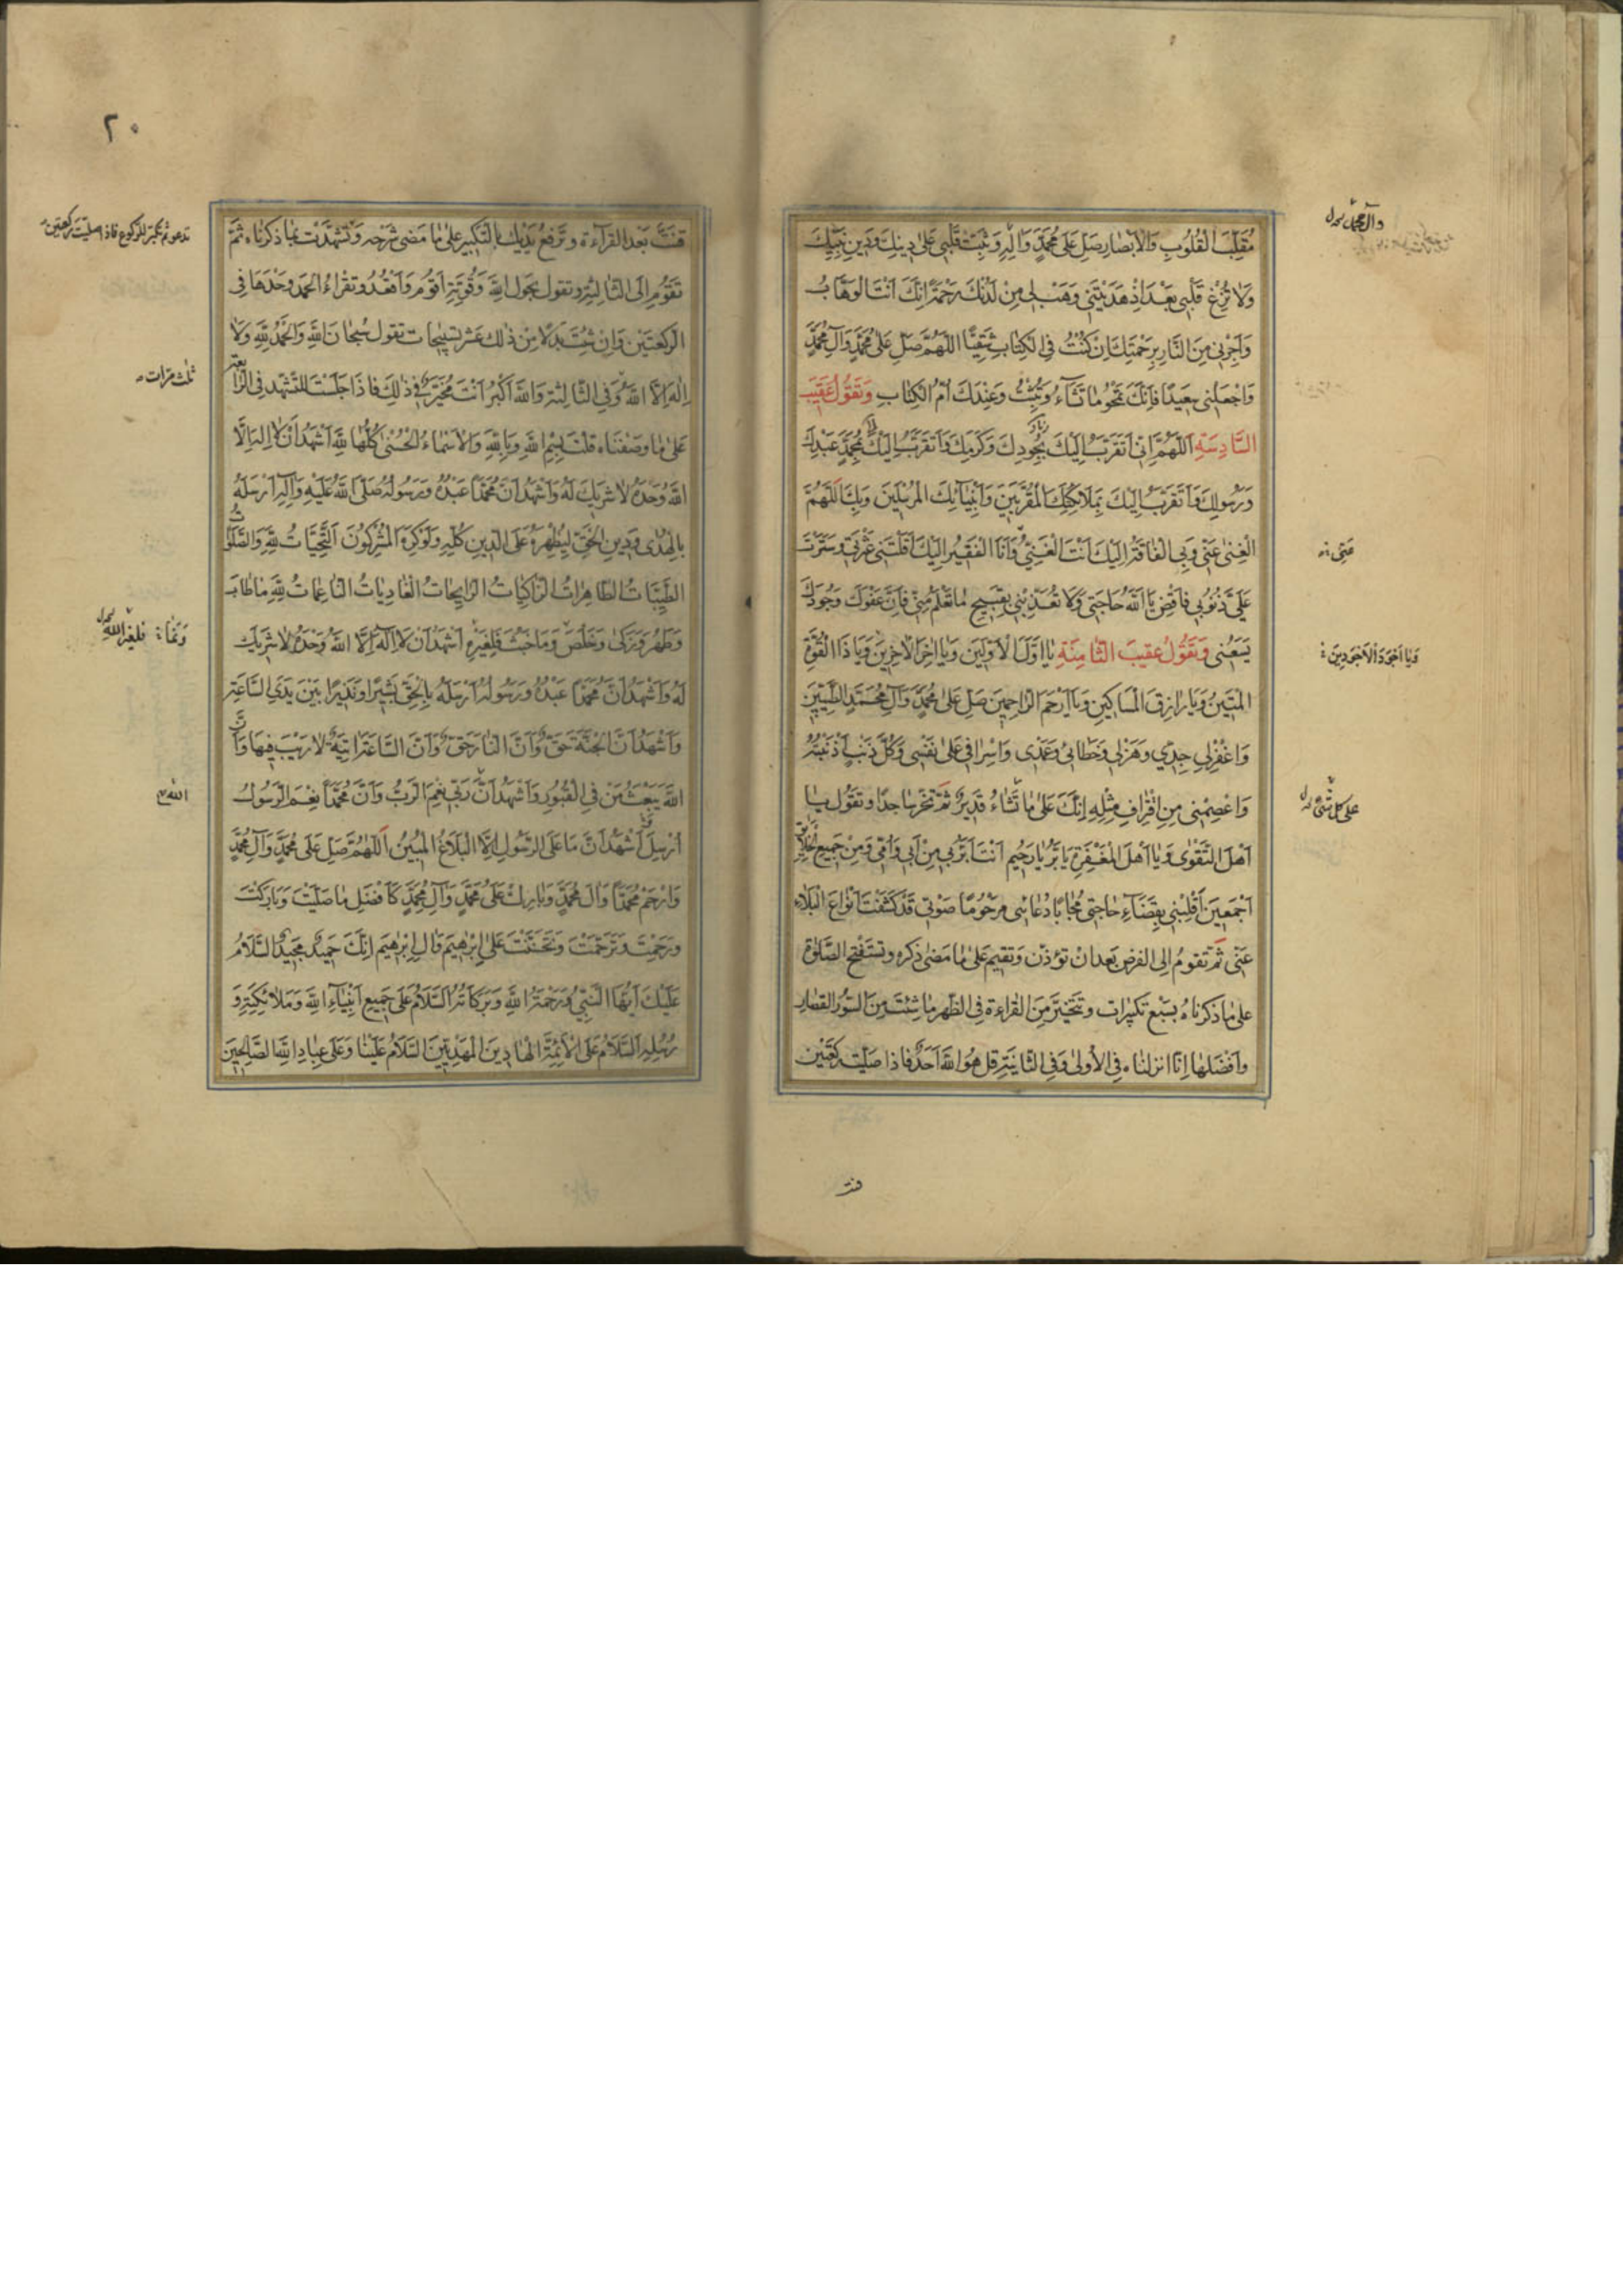 مُقَلِّبَ الْقُلُوبِ وَالْاَبْصَارِ صَلِّ عَلَى مُحَمَّدٍ وَالِهِ وَثَبِّتْ قَلْبِى عَلَى دِينِكَ وَدِينِ نَبِيِّكَ
وَلَا تُزِغْ قَلْبِى بَعْدَ اِذْ هَدَيْتَنِى وَهَبْ لِى مِنْ لَدُنْكَ رَحْمَةً اِنَّكَ اَنْتَ الْوَهَّابُ
وَاَجِرْنِى مِنَ النَّارِ بِرَحْمَتِكَ اِنْ كُنْتُ فِى الْكِتَابِ شَقِيًّا اَللّٰهُمَّ صَلِّ عَلَى مُحَمَّدٍ وَآلِ مُحَمَّدٍ
وَاجْعَلْنِى سَعِيدًا فَاِنَّكَ تَمْحُو مَا تَشَاءُ وَتُثْبِتُ وَعِنْدَكَ اُمُّ الْكِتَابِ وَتَقُولُ عَقِيبَ
السَّادِسَةِ اَللّٰهُمَّ اِنِّى اَتَقَرَّبُ اِلَيْكَ بِجُودِكَ وَكَرَمِكَ وَاَتَقَرَّبُ اِلَيْكَ بِمُحَمَّدٍ عَبْدِكَ
وَرَسُولِكَ وَاَتَقَرَّبُ اِلَيْكَ بِمَلَائِكَتِكَ الْمُقَرَّبِينَ وَاَنْبِيَائِكَ الْمُرْسَلِينَ وَبِكَ اَللّٰهُمَّ
الْغِنٰى عَنِّى وَبِى الْفَاقَةُ اِلَيْكَ اَنْتَ الْغَنِىُّ وَاَنَا الْفَقِيرُ اِلَيْكَ اَقَلْتَنِى عَثْرَتِى وَسَتَرْتَ
عَلَىَّ ذُنُوبِى فَاقْضِ يَا اَللّٰهُ حَاجَتِى وَلَا تُعَذِّبْنِى بِقَبِيحِ مَا تَعْلَمُ مِنِّى فَاِنَّ عَفْوَكَ وَجُودَكَ
يَسَعُنِى وَتَقُولُ عَقِيبَ الثَّامِنَةِ يَا اَوَّلَ الْاَوَّلِينَ وَيَا اٰخِرَ الْاٰخِرِينَ وَيَا ذَا الْقُوَّةِ
الْمَتِينُ وَيَا رَازِقَ الْمَسَاكِينِ وَيَا اَرْحَمَ الرَّاحِمِينَ صَلِّ عَلَى مُحَمَّدٍ وَآلِ مُحَمَّدٍ الطَّيِّبِينَ
وَاغْفِرْ لِى جِدِّى وَهَزْلِى وَخَطَائِى وَعَمْدِى وَاِسْرَافِى عَلَى نَفْسِى وَكُلَّ ذَنْبٍ اَذْنَبْتُهُ
وَاعْصِمْنِى مِنِ اقْتِرَافِ مِثْلِهِ اِنَّكَ عَلَى مَا تَشَاءُ قَدِيرٌ ثُمَّ تَخِرُّ سَاجِدًا وَتَقُولُ يَا
اَهْلَ التَّقْوٰى وَيَا اَهْلَ الْمَغْفِرَةِ يَا بَرُّ يَا رَحِيمُ اَنْتَ اَبَرُّ بِى مِنْ اَبِى وَاُمِّى وَمِنْ جَمِيعِ الْخَلَائِقِ
اَجْمَعِينَ اَقْلِبْنِى بِقَضَاءِ حَاجَتِى مُجَابًا دُعَائِى مَرْحُومًا صَوْتِى قَدْ كَشَفْتَ اَنْوَاعَ الْبَلَاءِ
عَنِّى ثُمَّ تَقُومُ اِلَى الْفَرْضِ بَعْدَ اَنْ تُؤَذِّنَ وَتُقِيمَ عَلَى مَا مَضٰى ذِكْرُهُ وَتَسْتَفْتِحُ الصَّلٰوةَ
عَلَى مَا ذَكَرْنَاهُ بِسَبْعِ تَكْبِيرَاتٍ وَتَتَخَيَّرُ مِنَ الْقِرَاءَةِ فِى الظُّهْرِ مَا شِئْتَ مِنَ السُّوَرِ الْقِصَارِ
وَاَفْضَلُهَا اِنَّا اَنْزَلْنَاهُ فِى الْاُولٰى وَفِى الثَّانِيَةِ قُلْ هُوَ اللّٰهُ اَحَدٌ فَاِذَا صَلَّيْتَ رَكْعَتَيْنِ
وآل محمد
عَنِّى
وَيَا اَجْوَدَ الْاَجْوَدِينَ
على كل شئ
قنت
٢٠
قَنَتَّ بَعْدَ الْقِرَاءَةِ وَتَرْفَعُ يَدَيْكَ بِالتَّكْبِيرِ عَلَى مَا مَضٰى شَرْحُهُ وَتَشَهَّدْتَ بِمَا ذَكَرْنَاهُ ثُمَّ
تَقُومُ اِلَى الثَّالِثَةِ وَتَقُولُ بِحَوْلِ اللّٰهِ وَقُوَّتِهِ اَقُومُ وَاَقْعُدُ وَتَقْرَاءُ الْحَمْدَ وَحْدَهَا فِى
الرَّكْعَتَيْنِ وَاِنْ شِئْتَ بَدَلًا مِنْ ذٰلِكَ عَشْرَ تَسْبِيحَاتٍ تَقُولُ سُبْحَانَ اللّٰهِ وَالْحَمْدُ لِلّٰهِ وَلَا
اِلٰهَ اِلَّا اللّٰهُ وَفِى الثَّالِثَةِ وَاللّٰهُ اَكْبَرُ اَنْتَ مُخَيَّرٌ فِى ذٰلِكَ فَاِذَا جَلَسْتَ لِلتَّشَهُّدِ فِى الرَّابِعَةِ
عَلَى مَا وَصَفْنَاهُ قُلْتَ بِسْمِ اللّٰهِ وَبِاللّٰهِ وَالْاَسْمَاءُ الْحُسْنٰى كُلُّهَا لِلّٰهِ اَشْهَدُ اَنْ لَا اِلٰهَ اِلَّا
اللّٰهُ وَحْدَهُ لَا شَرِيكَ لَهُ وَاَشْهَدُ اَنَّ مُحَمَّدًا عَبْدُهُ وَرَسُولُهُ صَلَّى اللّٰهُ عَلَيْهِ وَآلِهِ اَرْسَلَهُ
بِالْهُدٰى وَدِينِ الْحَقِّ لِيُظْهِرَهُ عَلَى الدِّينِ كُلِّهِ وَلَوْ كَرِهَ الْمُشْرِكُونَ اَلتَّحِيَّاتُ لِلّٰهِ وَالصَّلَوَاتُ
الطَّيِّبَاتُ الطَّاهِرَاتُ الزَّاكِيَاتُ الرَّايِحَاتُ الْغَادِيَاتُ النَّاعِمَاتُ لِلّٰهِ مَا طَابَ
وَطَهُرَ وَزَكٰى وَخَلَصَ وَمَا خَبُثَ فَلِغَيْرِهِ اَشْهَدُ اَنْ لَا اِلٰهَ اِلَّا اللّٰهُ وَحْدَهُ لَا شَرِيكَ
لَهُ وَاَشْهَدُ اَنَّ مُحَمَّدًا عَبْدُهُ وَرَسُولُهُ اَرْسَلَهُ بِالْحَقِّ بَشِيرًا وَنَذِيرًا بَيْنَ يَدَىِ السَّاعَةِ
وَاَشْهَدُ اَنَّ الْجَنَّةَ حَقٌّ وَاَنَّ النَّارَ حَقٌّ وَاَنَّ السَّاعَةَ اٰتِيَةٌ لَا رَيْبَ فِيهَا وَاَنَّ
اللّٰهَ يَبْعَثُ مَنْ فِى الْقُبُورِ وَاَشْهَدُ اَنَّ رَبِّى نِعْمَ الرَّبُّ وَاَنَّ مُحَمَّدًا نِعْمَ الرَّسُولُ
اُرْسِلَ اَشْهَدُ اَنَّ مَا عَلَى الرَّسُولِ اِلَّا الْبَلَاغُ الْمُبِينُ اَللّٰهُمَّ صَلِّ عَلَى مُحَمَّدٍ وَآلِ مُحَمَّدٍ
وَارْحَمْ مُحَمَّدًا وَآلَ مُحَمَّدٍ وَبَارِكْ عَلَى مُحَمَّدٍ وَآلِ مُحَمَّدٍ كَاَفْضَلِ مَا صَلَّيْتَ وَبَارَكْتَ
وَرَحِمْتَ وَتَرَحَّمْتَ وَتَحَنَّنْتَ عَلَى اِبْرٰهِيمَ وَآلِ اِبْرٰهِيمَ اِنَّكَ حَمِيدٌ مَجِيدٌ اَلسَّلَامُ
عَلَيْكَ اَيُّهَا النَّبِىُّ وَرَحْمَةُ اللّٰهِ وَبَرَكَاتُهُ اَلسَّلَامُ عَلَى جَمِيعِ اَنْبِيَاءِ اللّٰهِ وَمَلَائِكَتِهِ وَ
رُسُلِهِ اَلسَّلَامُ عَلَى الْاَئِمَّةِ الْهَادِينَ الْمَهْدِيِّينَ اَلسَّلَامُ عَلَيْنَا وَعَلَى عِبَادِ اللّٰهِ الصَّالِحِينَ
تدعو ثم تكبر للركوع فاذا صليت ركعتين
ثلث مرات
وَنَمَا فلغير الله
الله